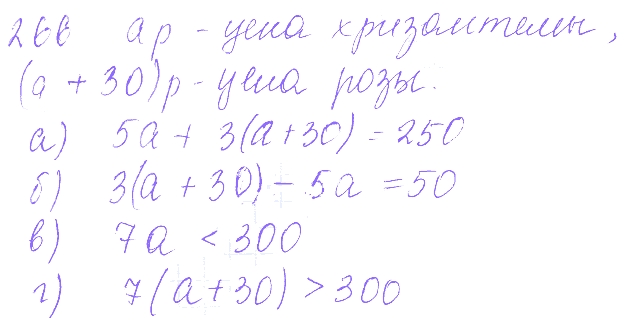 266 а р - цена хризантемы,
(а + 30) р - цена розы.
а) 5а + 3(а+30) = 250
б) 3(а + 30) - 5а = 50
в) 7а < 300
г) 7(а+30) > 300